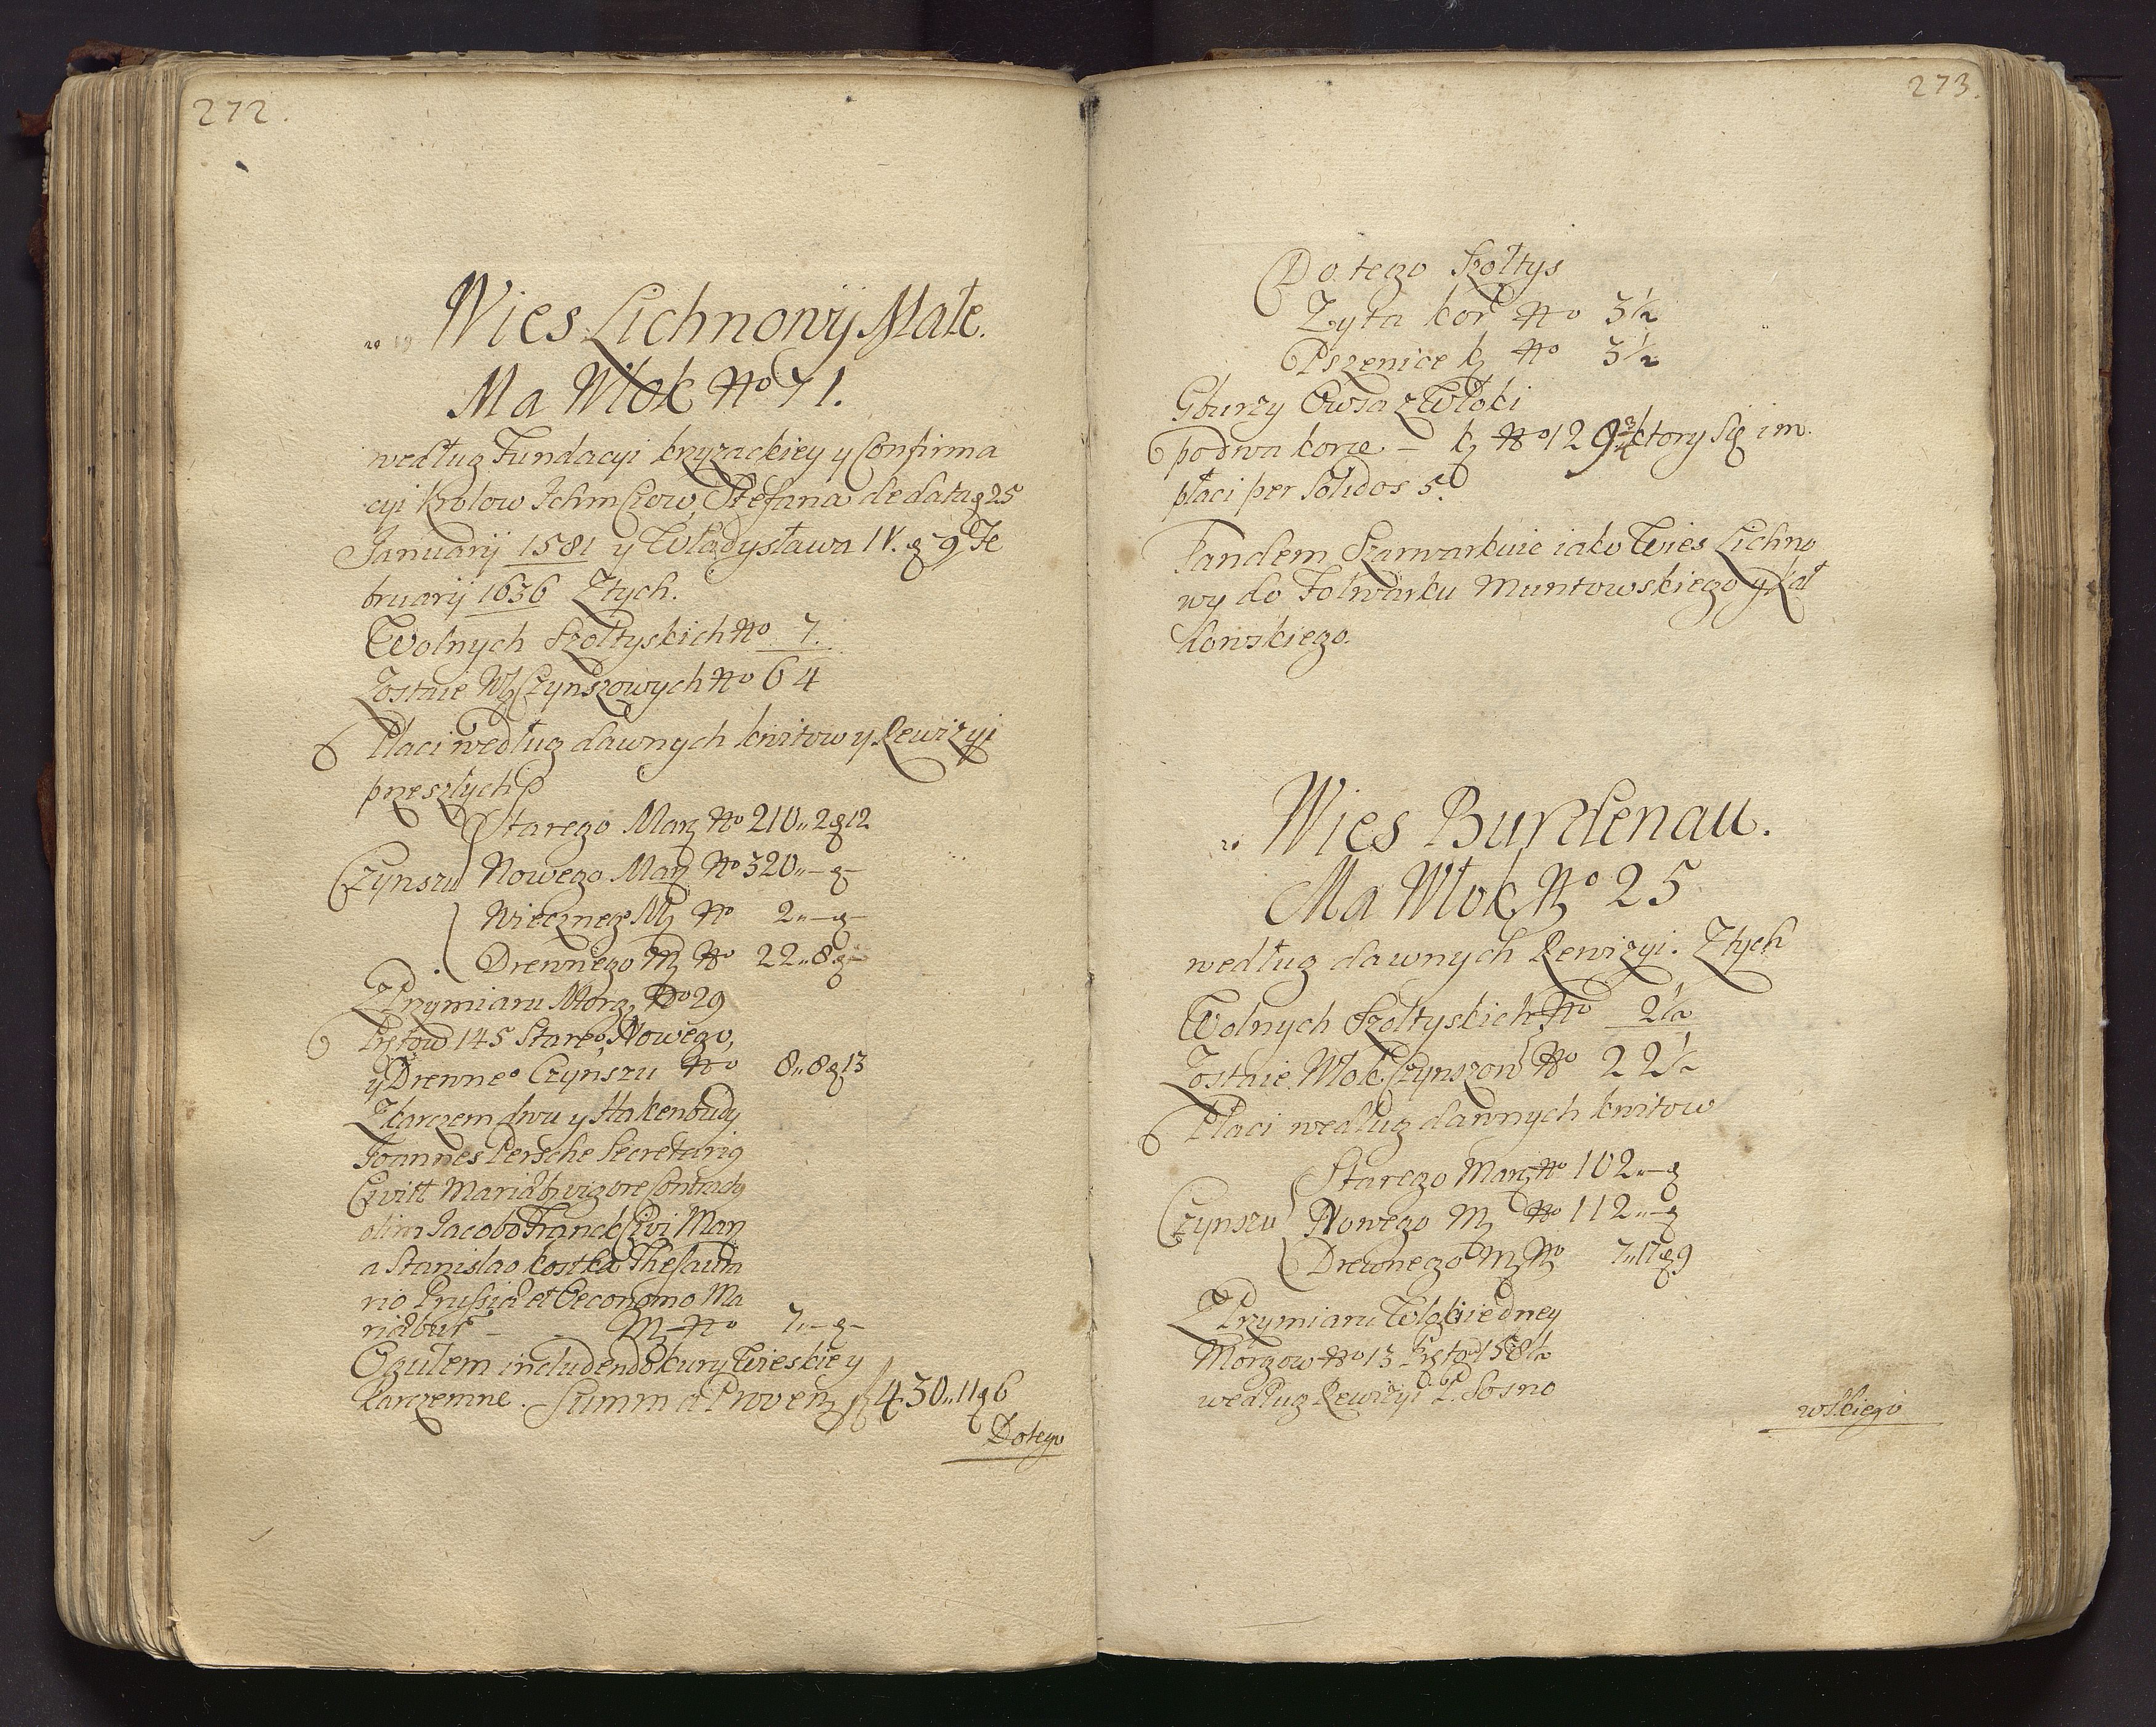 272.
Wies Lichnowÿ Małe.
Ma Włok No 71.
według Fundacyi krzyzackiey y Confirma
cyi Krolow Ichmciow, Stefana de data 25
Januarÿ 1581 y Władysława IV. 9 Fe
bruarÿ 1636 Ztych.
Wolnych Szołtyskich No 7.
Zostaie Wł Czynszowych No 64
Płaci według dawnych kwitow y Rewizyi
przeszłych
Starego Marz No 210 „ 2 g 12
Czynszu Nowego Marz No 320 „ — g —
Wiecznego M No 2 „ — g —
Drewnego M No 22 „ 8 g —
Z Przymiaru Morg No 29
Prętow 145 Stareo, Nowego,
y Drewneo Czynszu No 8 „ 8 g 13
Z karczem dwu y Hakenbudy
Joannes Persche Secretarig
Civitt Mariæb. vigore Contractq
olim Jacobo Franck Civi Marÿ
a Stanislao Kostka Thesaura
rio Prussiæ et Oeconomo Ma
riæbur — M No 7 „ — g —
Ogułem includendo kury Wieskie y
karczemne. Summa Proven f 430 „ 11 g 6
Dotego
273.
Do tego Szołtys
Zyta kor No 3½
Pszenice k No 3½
Gburzy Owsa z Włoki
po dwa korce — k No 129¾ ktory się im
płaci per Solidos 5.
Tandem Szarwarkuie iako Wies Lichno
wy do Folwarku Muntowskiego y Kał
dowskiego.
Wies Burdenau.
Ma Włok No 25
według dawnych Rewizyi. Ztych
Wolnych Szołtyskich No 2½
Zostaie Włok Czynszow No 22½
Płaci według dawnych kwitow
Starego Marz No 102 „ — g
Czynszu Nowego M No 112 „ — g
Drewnego M No 7 „ 17 g 9
Z Przymiaru Włoki iedney
Morgow No 13 Pręto 158½
według Rewizyi P. Sosno
wskiego